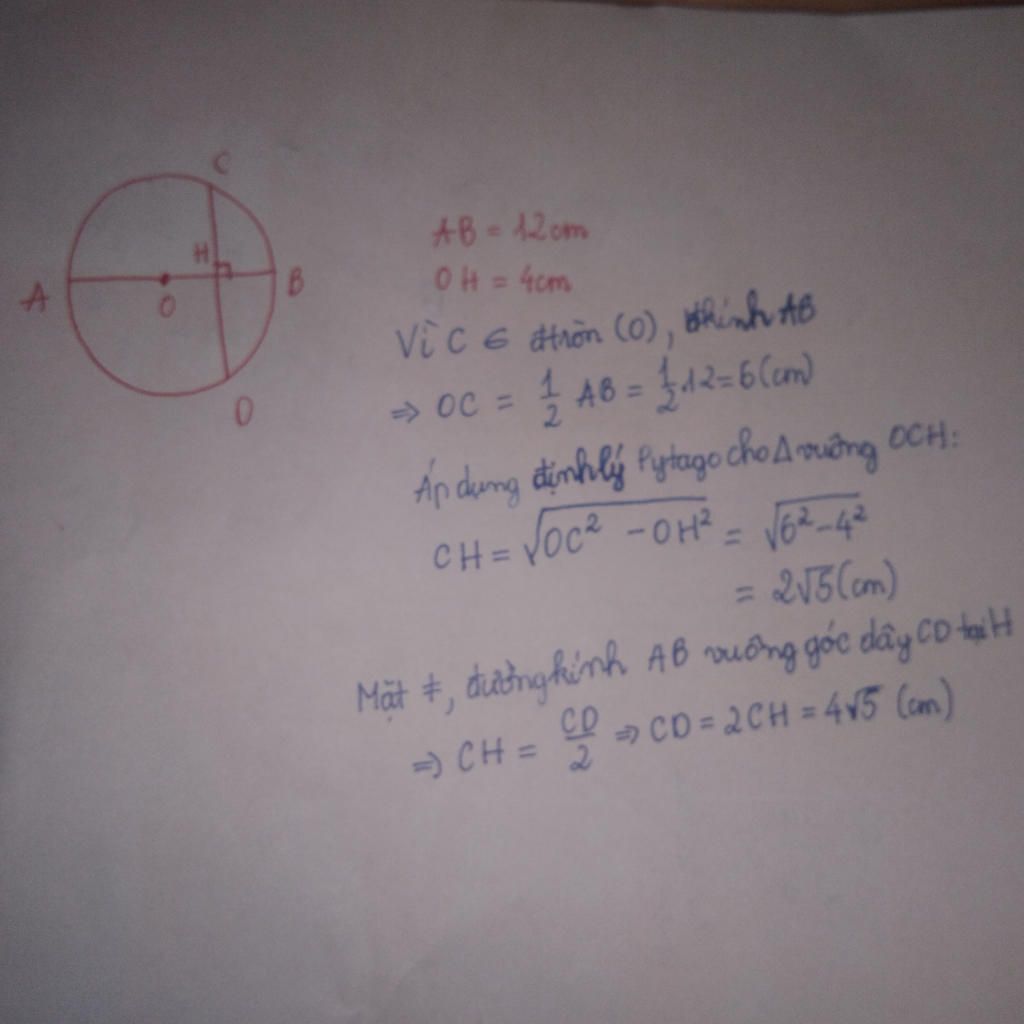 C
H
A
O
B
D
AB = 12cm
OH = 4cm
Vì C ∈ đtròn (O), đkính AB
⇒ OC = 1/2 AB = 1/2 .12 = 6 (cm)
Áp dụng định lý Pytago cho Δ vuông OCH:
CH = √(OC² - OH²) = √(6² - 4²)
= 2√5 (cm)
Mặt ≠, đường kính AB vuông góc dây CD tại H
⇒ CH = CD/2 ⇒ CD = 2CH = 4√5 (cm)